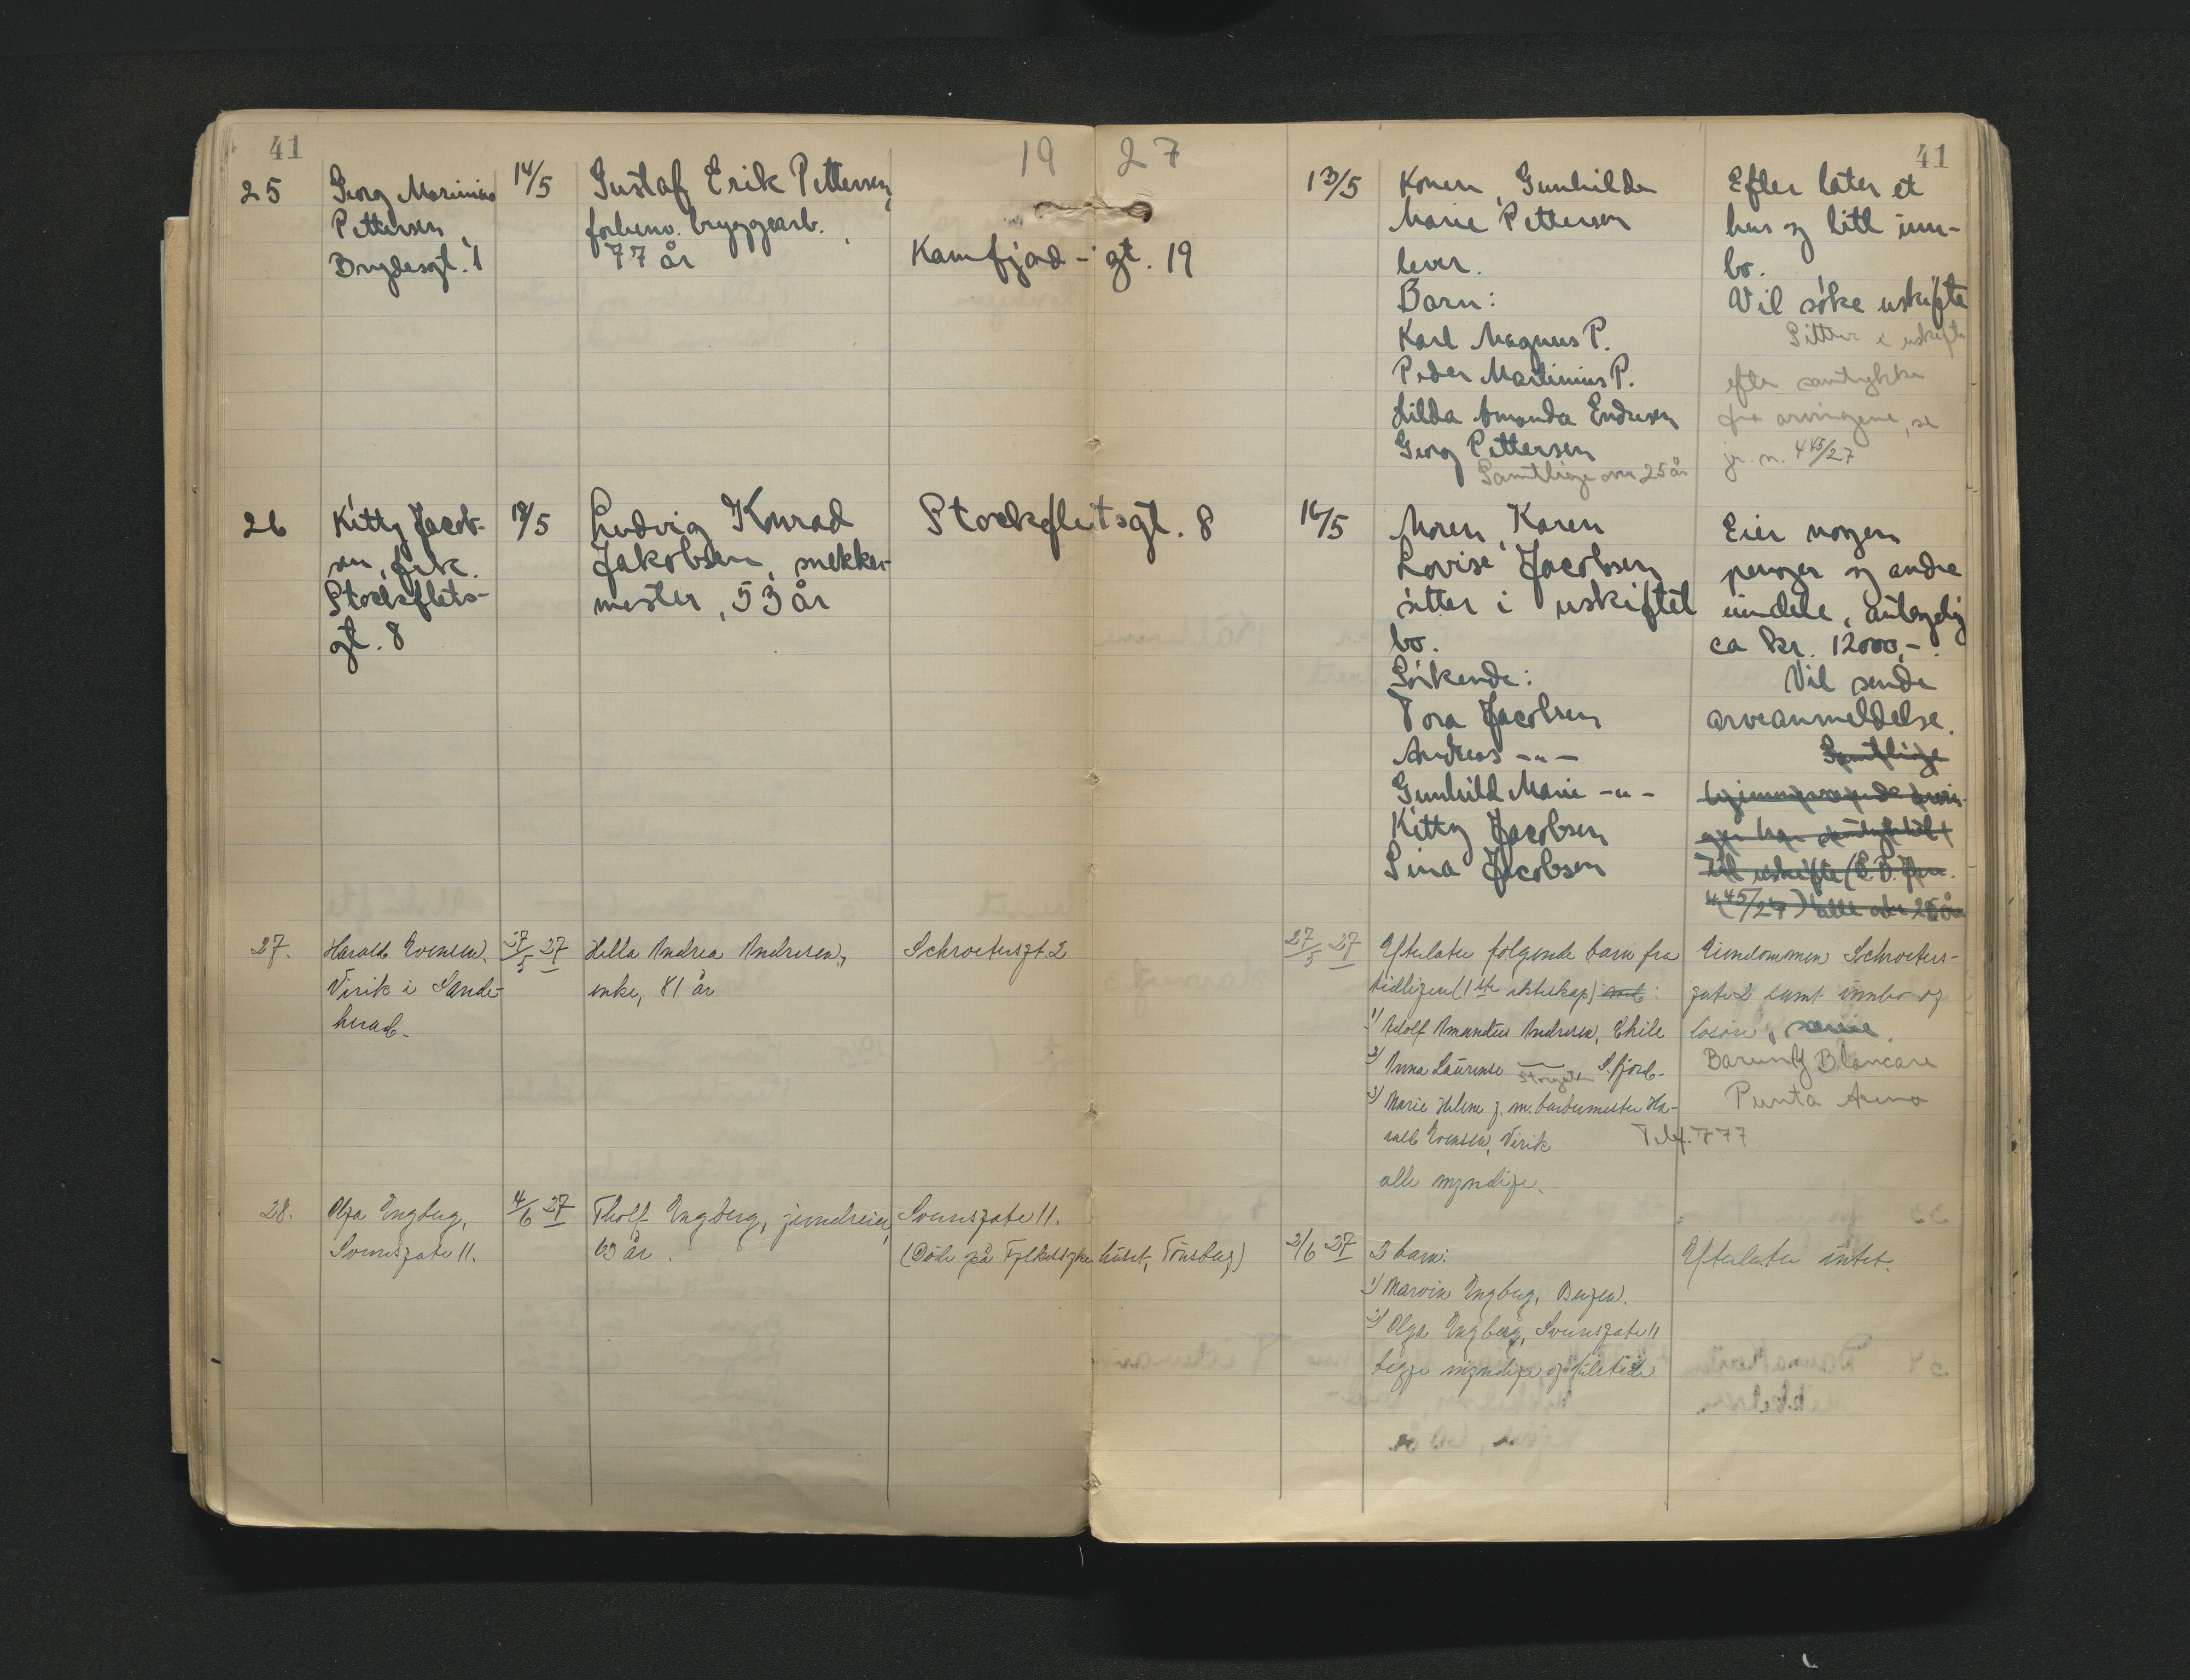 41
19 27
41
25
Georg Marinius
Pettersen,
Brydesgt. 1
14/5
Gustaf Erik Pettersen,
forhenv. bryggearb.,
77 år
Kamfjord-gt. 19
13/5
Konen, Gunhilda
Marie Pettersen
lever.
Barn:
Karl Magnus P.
Peder Martinius P.
Hilda Amanda Endresen
Georg Pettersen
Samtlige over 25 år
Efterlater et
hus og litt inn-
bo.
Vil søke uskifte
Sitter i uskifte
efter samtykke
fra arvingene, se
jr. n. 445/27
26
Kitty Jacob-
sen, frk.
Stockflets-
gt. 8
/5
Ludvig Konrad
Jakobsen, snekker-
mester, 53 år
Stockfletsgt. 8
16/5
Moren, Karen
Lovise Jacobsen
sitter i uskiftet
bo.
Søskende:
Tora Jacobsen
Andreas -"-
Gunhild Marie -"-
Kitty Jacobsen
Sina Jacobsen
Eier nogen
penger og andre
eiendele, antagelig
ca kr. 12000,-.
Vil sende
arveanmeldelse.
Samtlige
til uskifte
445/27) alle over 25 år
27.
Harald Evensen,
Virik i Sande-
herad.
27/5 27
Hella Andrea Andresen,
enke, 81 år
Schroetersgt. 2
27/5 27
Efterlater følgende barn fra
tidligere (1ste ekteskap) med:
1) Adolf Amandus Andresen, Chile
2) Anna Laurense — Storgaten S.fjord.
3) Marie Helene g. m. barbermester Ha-
rald Evensen, Virik
alle myndige.
Eiendommen Schroeters-
gate 2 samt innbo og
løsøre,
Blancare
Punta Arena
Telf. 777
28.
Olga Engberg,
Svinesgate 11.
4/6 27
Tholf Engberg, jerndreier,
63 år.
Svinesgate 11.
(Døde på Fylkessykehuset, Tønsberg)
3/6 27
2 barn:
1) Marvin Engberg, Bergen.
2) Olga Engberg, Svinesgate 11
begge myndige og tilstede
Efterlater intet.